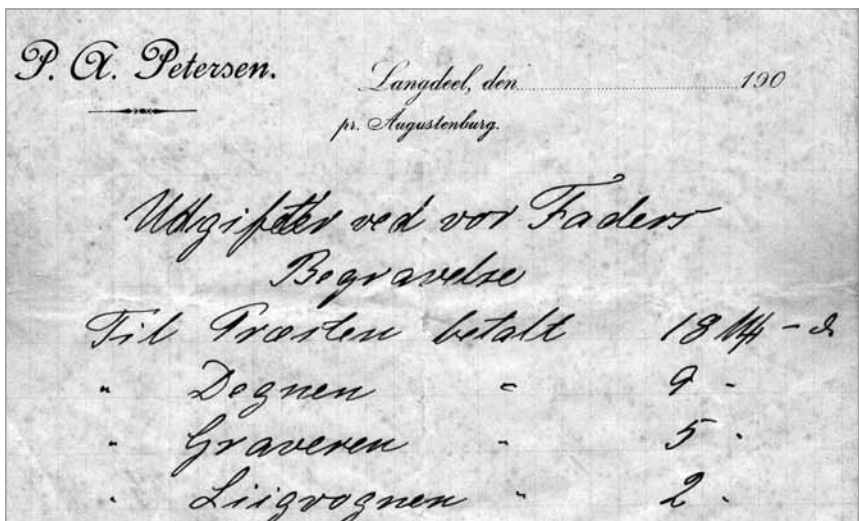 P. A. Petersen.
Langdeel, den 190
pr. Augustenburg.
Udgifter ved vor Faders
Begravelse
Til Præsten betalt 18 M - d
" Degnen " 9 -
" Graveren " 5 -
" Liigvognen " 2 -